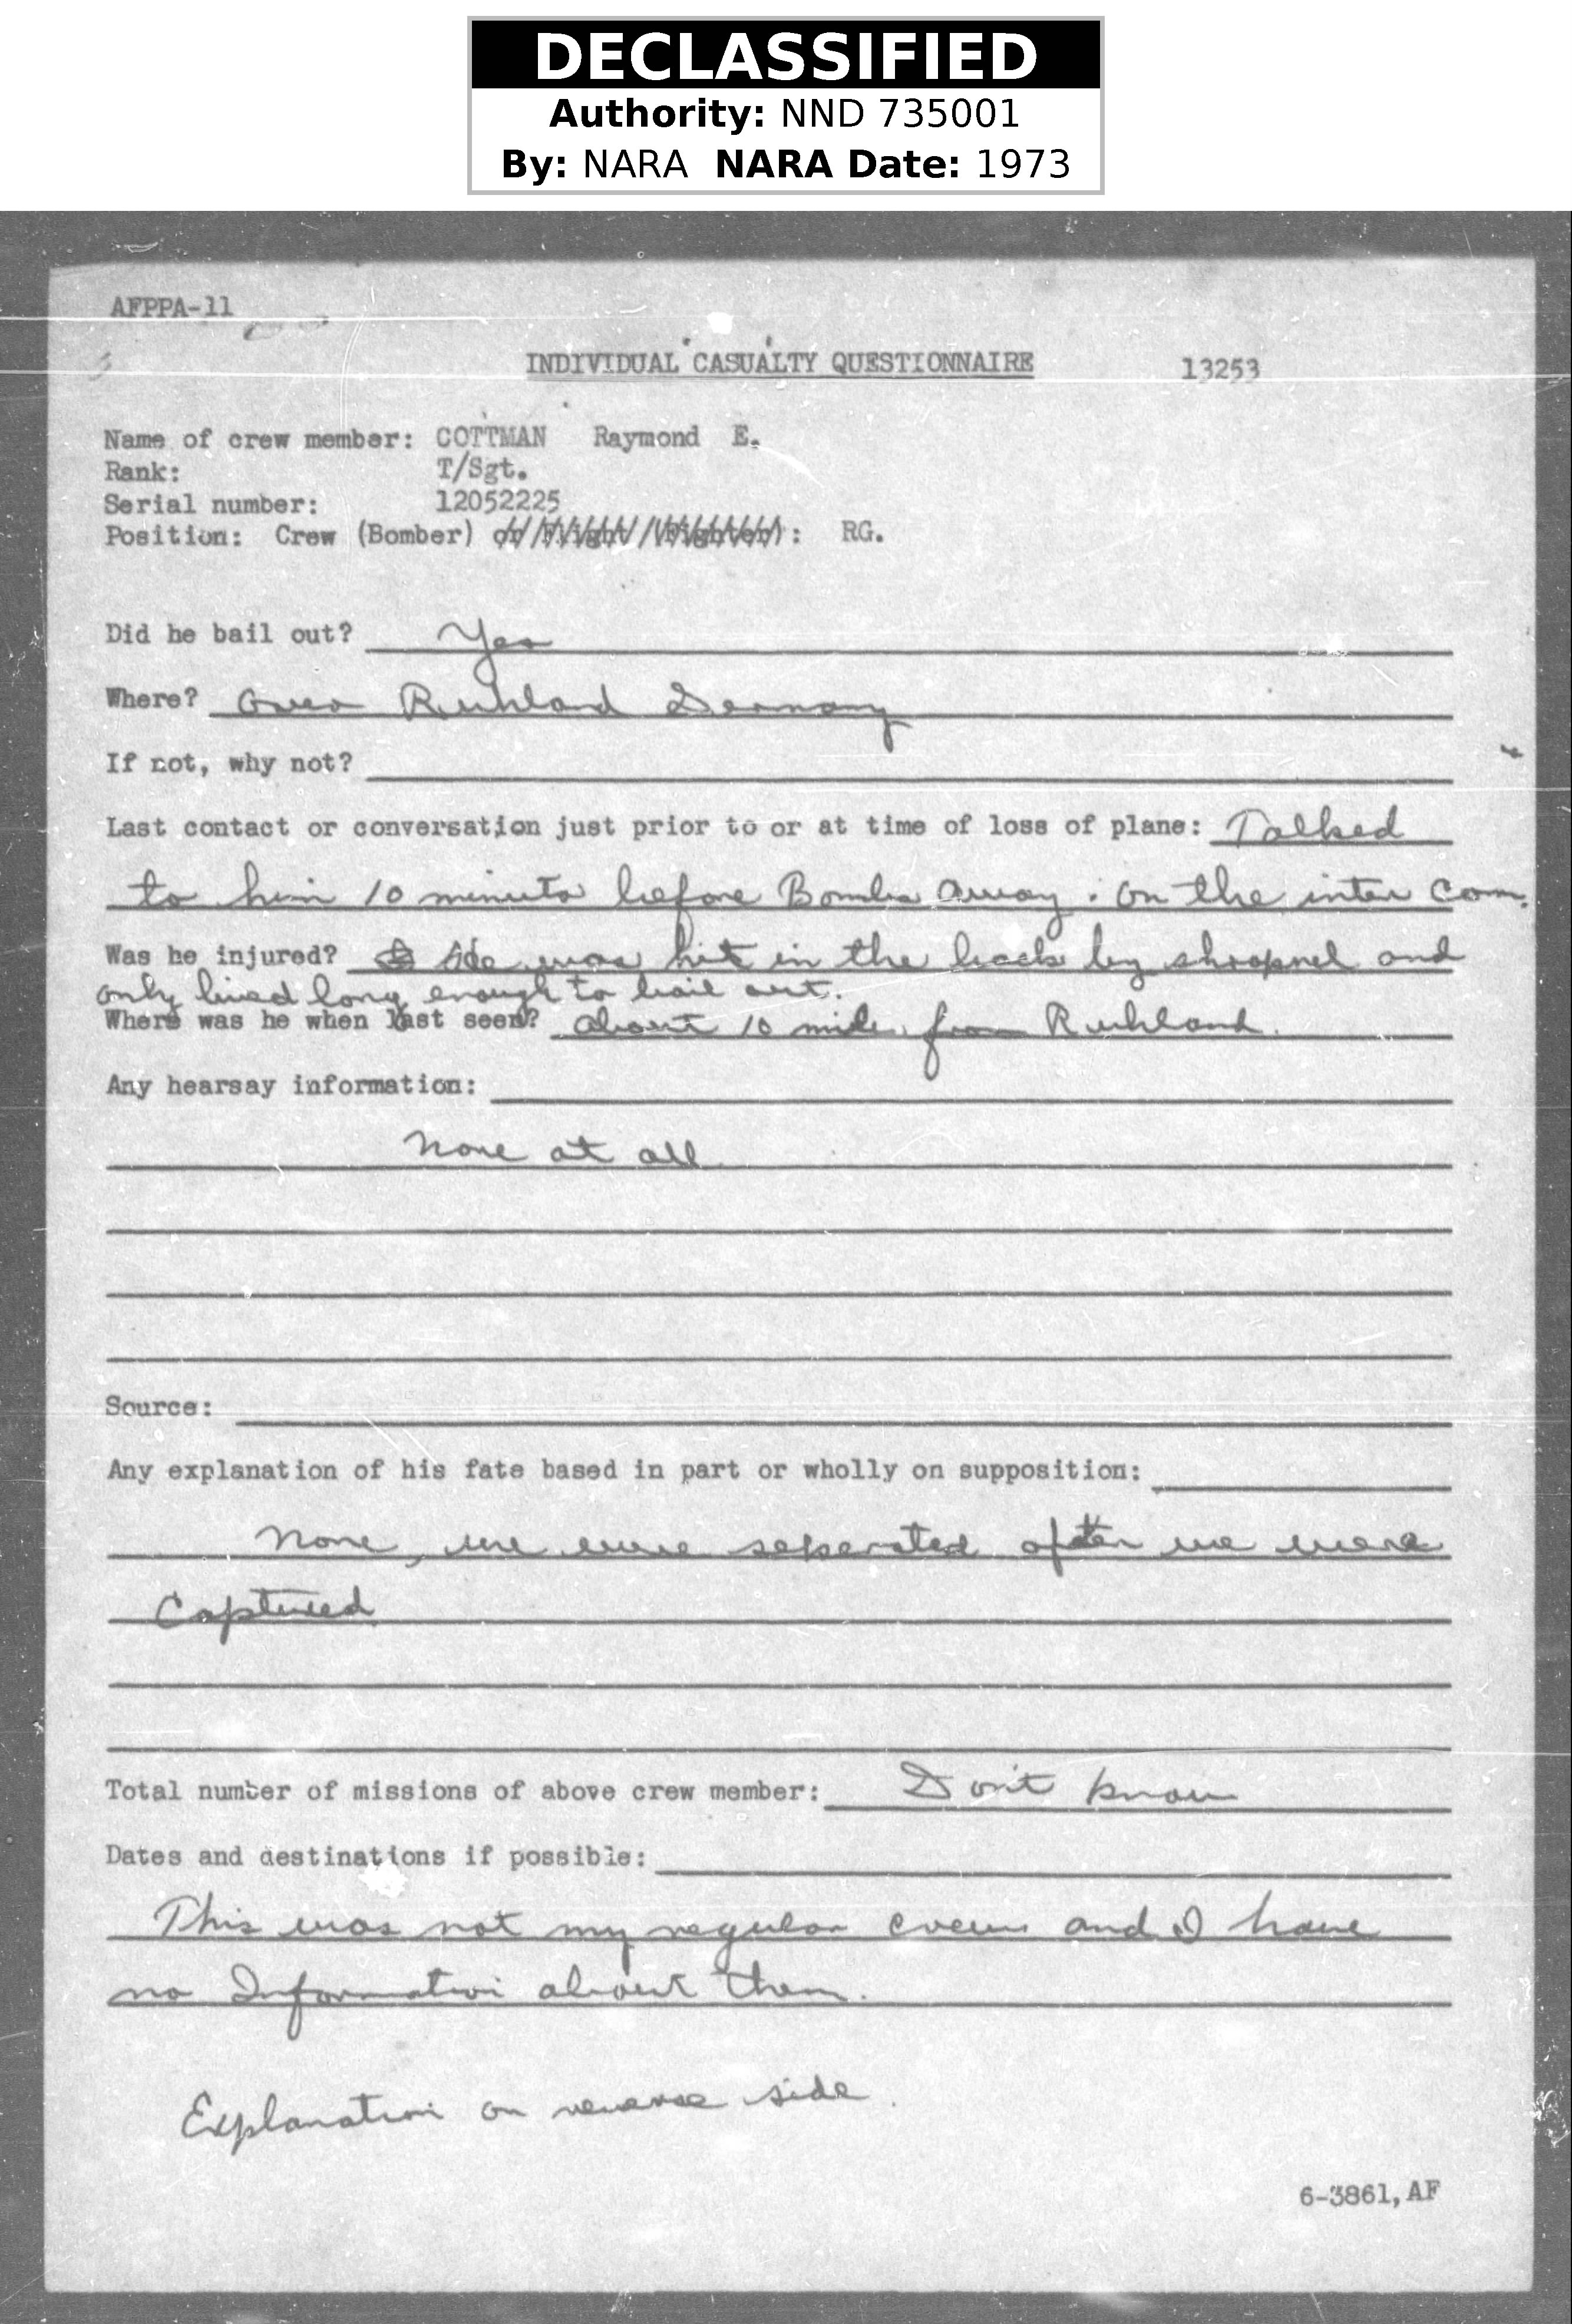 DECLASSIFIED
Authority: NND 735001
By: NARA NARA Date: 1973
AFPPA-11
INDIVIDUAL CASUALTY QUESTIONNAIRE 13253
Name of crew member: COTTMAN Raymond E.
Rank: T/Sgt.
Serial number: 12052225
Position: Crew (Bomber) or Flight (Fighter): RG.
Did he bail out? Yes
Where? Over Ruhland Germany
If not, why not?
Last contact or conversation just prior to or at time of loss of plane: Talked
to him 10 minuts before Bombs Away. on the inter Com.
Was he injured? He was hit in the back by shrapnel and
only lived long enough to bail out.
Where was he when last seen? about 10 mile from Ruhland.
Any hearsay information:
None at all
Source:
Any explanation of his fate based in part or wholly on supposition:
None, we were seperated after we were
Captured
Total number of missions of above crew member: Don't know
Dates and destinations if possible:
This was not my regular crew and I have
no Information about them.
Explanation on reverse side.
6-3861,AF